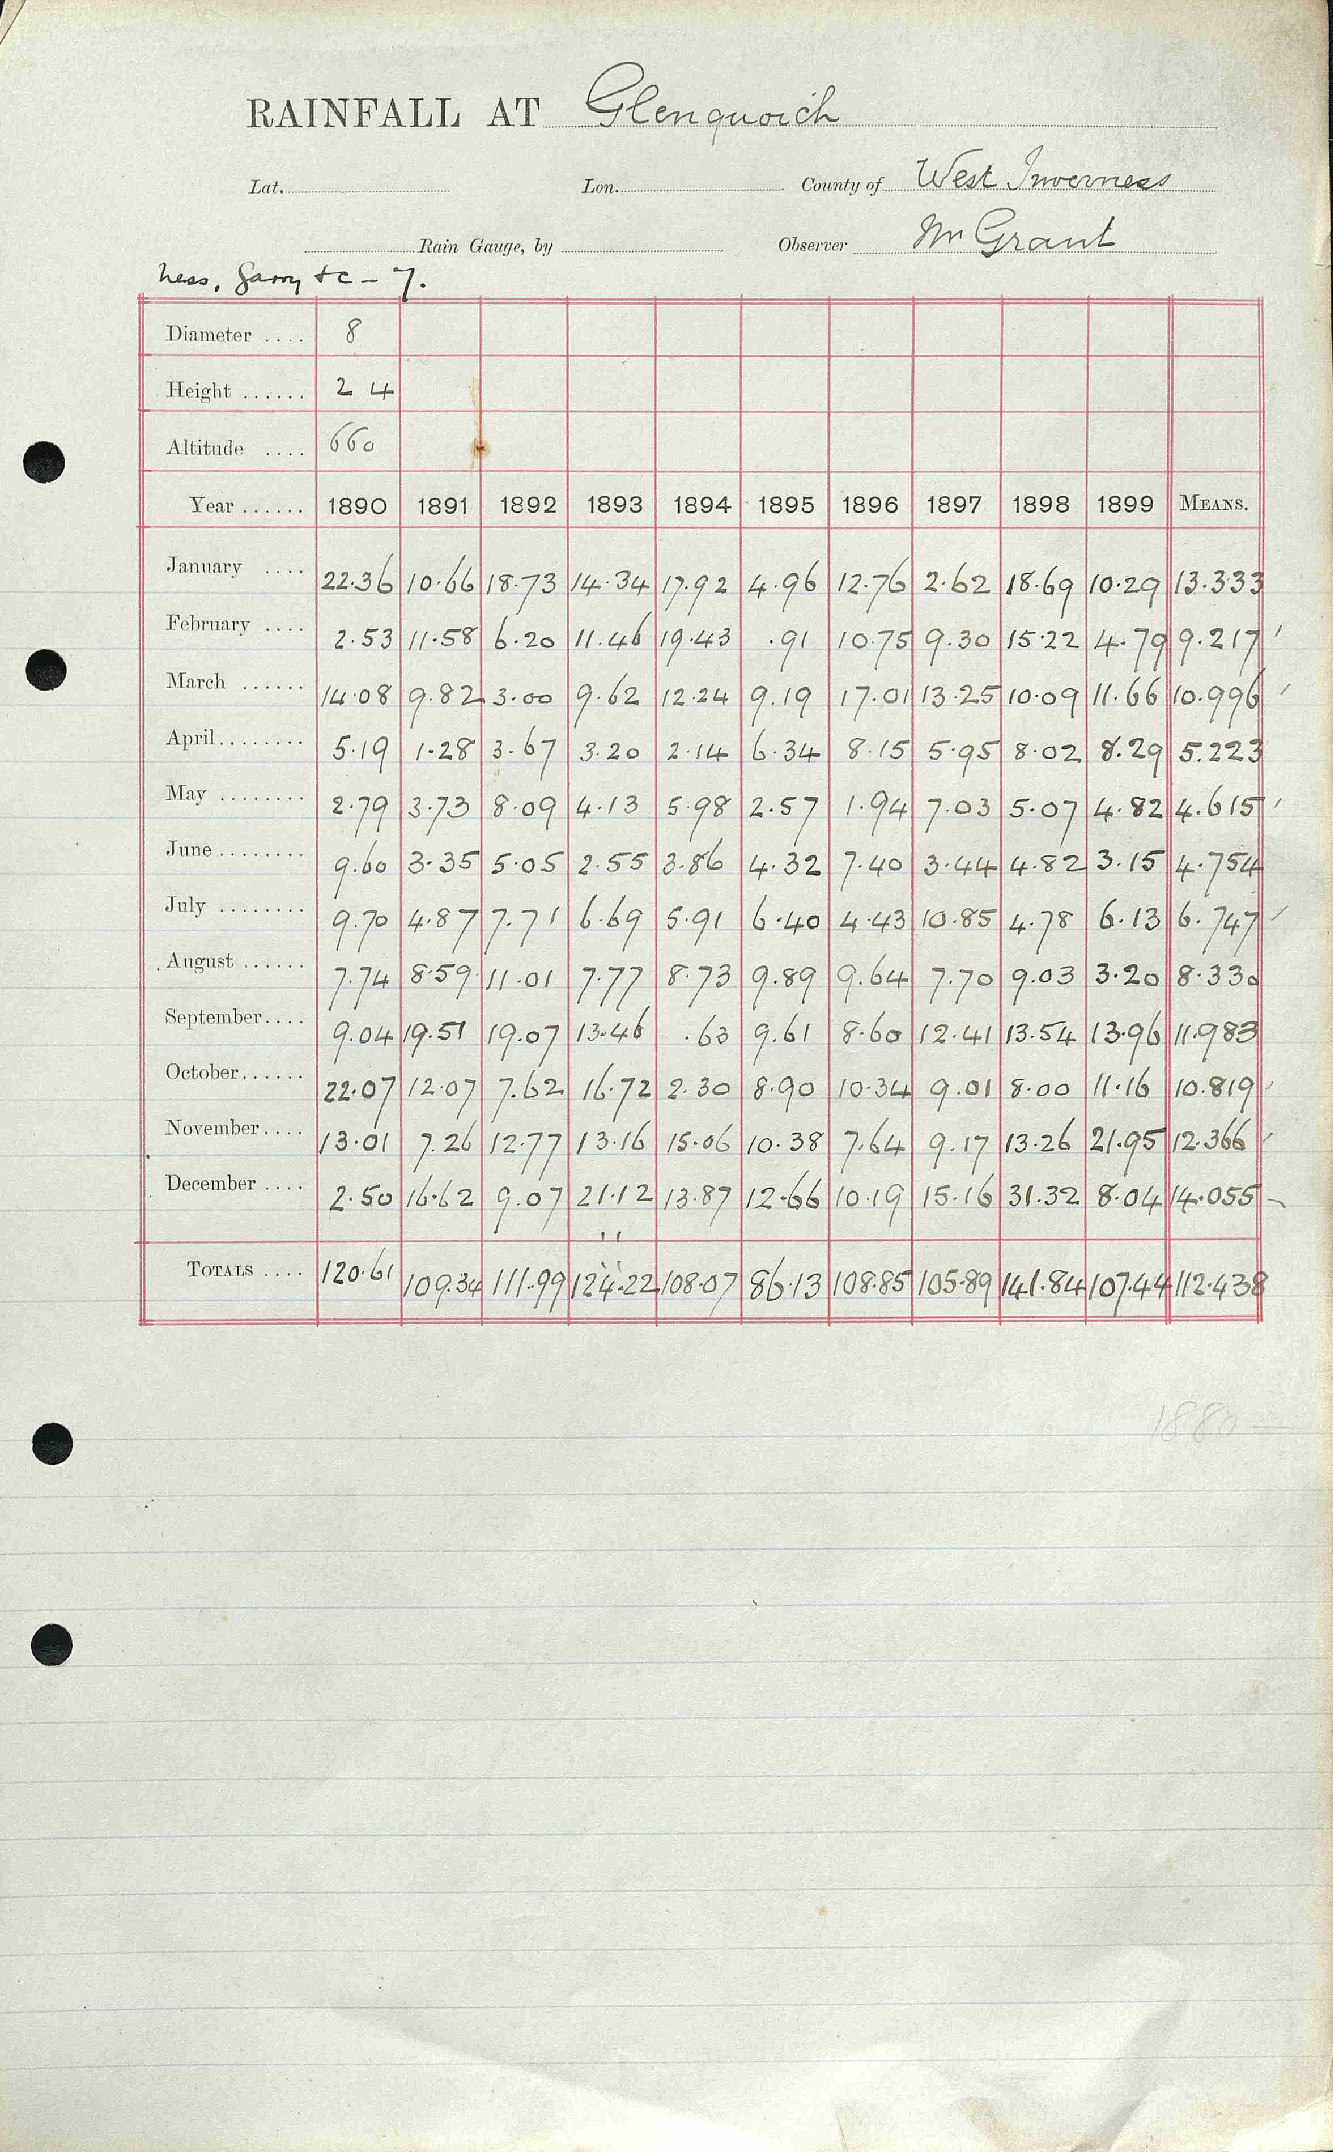 RAINFALL AT Glenquoich
Lat. Lon. County of West Inverness
Rain Gauge, by Observer Mr Grant
Ness, Garry &c - 7.
Diameter .... 8
Height ...... 2 4
Altitude .... 660
Year ...... 1890 1891 1892 1893 1894 1895 1896 1897 1898 1899 MEANS.
January .... 22.36 10.66 18.73 14.34 17.92 4.96 12.76 2.62 18.69 10.29 13.333
February .... 2.53 11.58 6.20 11.46 19.43 .91 10.75 9.30 15.22 4.79 9.217
March ...... 14.08 9.82 3.00 9.62 12.24 9.19 17.01 13.25 10.09 11.66 10.996
April........ 5.19 1.28 3.67 3.20 2.14 6.34 8.15 5.95 8.02 8.29 5.223
May ........ 2.79 3.73 8.09 4.13 5.98 2.57 1.94 7.03 5.07 4.82 4.615
June........ 9.60 3.35 5.05 2.55 3.86 4.32 7.40 3.44 4.82 3.15 4.754
July ........ 9.70 4.87 7.71 6.69 5.91 6.40 4.43 10.85 4.78 6.13 6.747
August ...... 7.74 8.59 11.01 7.77 8.73 9.89 9.64 7.70 9.03 3.20 8.330
September.... 9.04 19.51 19.07 13.46 .63 9.61 8.60 12.41 13.54 13.96 11.983
October...... 22.07 12.07 7.62 16.72 2.30 8.90 10.34 9.01 8.00 11.16 10.819
November.... 13.01 7.26 12.77 13.16 15.06 10.38 7.64 9.17 13.26 21.95 12.366
December .... 2.50 16.62 9.07 21.12 13.87 12.66 10.19 15.16 31.32 8.04 14.055
TOTALS .... 120.61 109.34 111.99 124.22 108.07 86.13 108.85 105.89 141.84 107.44 112.438
1880 —